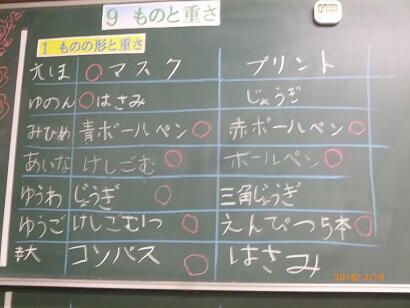 9 ものと重さ
1 ものの形と重さ
えほ ○マスク プリント
ゆのん ○はさみ じょうぎ
みひめ 青ボールペン○ 赤ボールペン○
あいな けしごむ○ ボールペン○
ゆうわ じょうぎ○ 三角じょうぎ
ゆうご けしごむ1つ○ えんぴつ5本○
コンパス○ はさみ
2018/ 2/19